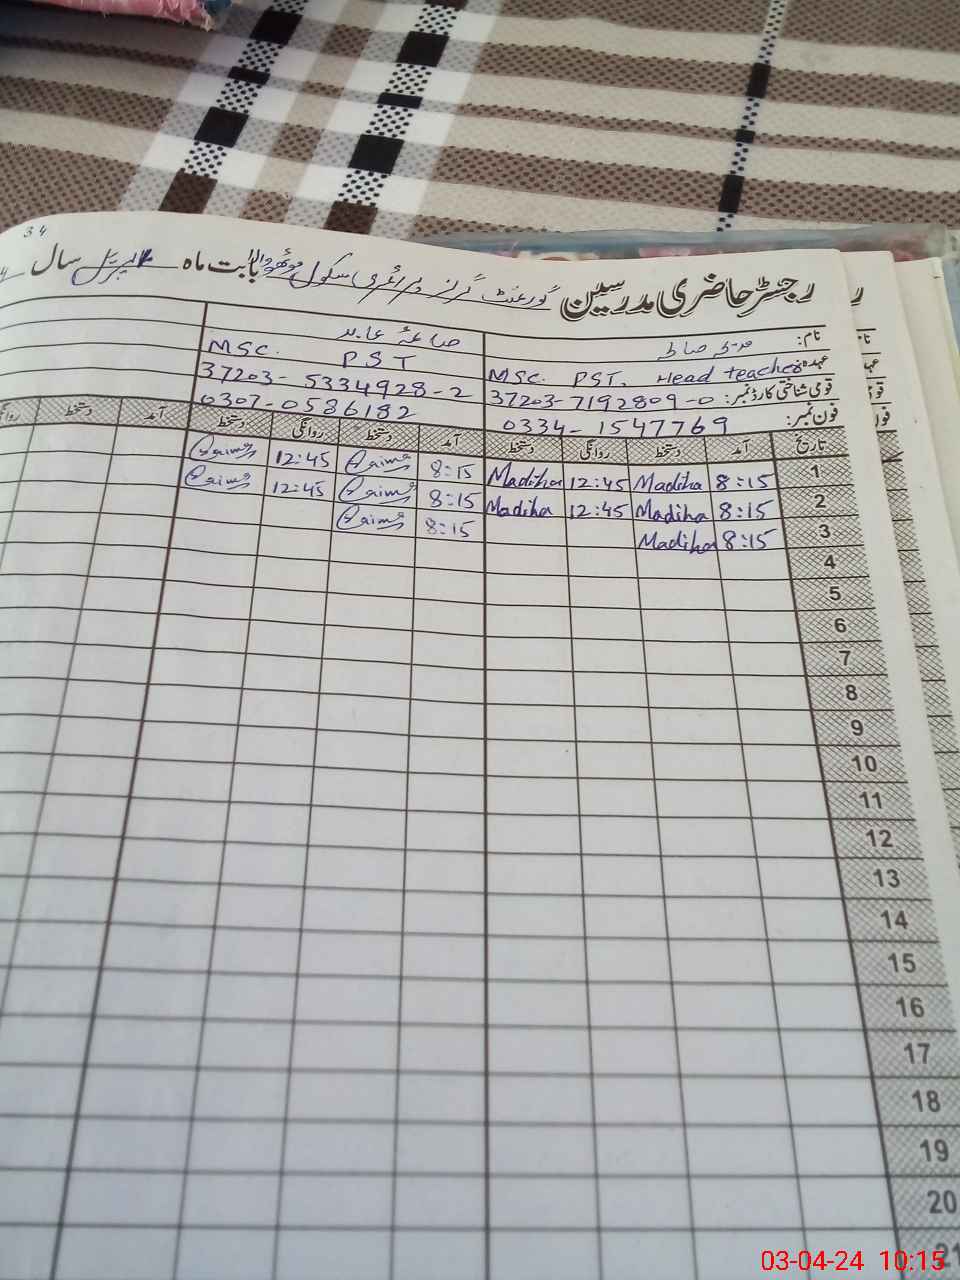 34
رجسٹر حاضری مدرسین گورنمنٹ گرلز پرائمری سکول بابت ماہ اپریل سال
نام: مدیحہ صالحہ صاعقہ عابد
عہدہ: MSC. PST. Head teacher MSC. PST
قومی شناختی کارڈ نمبر: 37203-7192809-0 37203-5334928-2
فون نمبر: 0334-1547769 0307-0586182
تاریخ آمد دستخط روانگی دستخط آمد دستخط روانگی دستخط آمد دستخط
1 8:15 Madiha 12:45 Madiha 8:15 Saima 12:45 Saima
2 8:15 Madiha 12:45 Madiha 8:15 Saima 12:45 Saima
3 8:15 Madiha 8:15 Saima
4
5
6
7
8
9
10
11
12
13
14
15
16
17
18
19
20
21
03-04-24 10:15